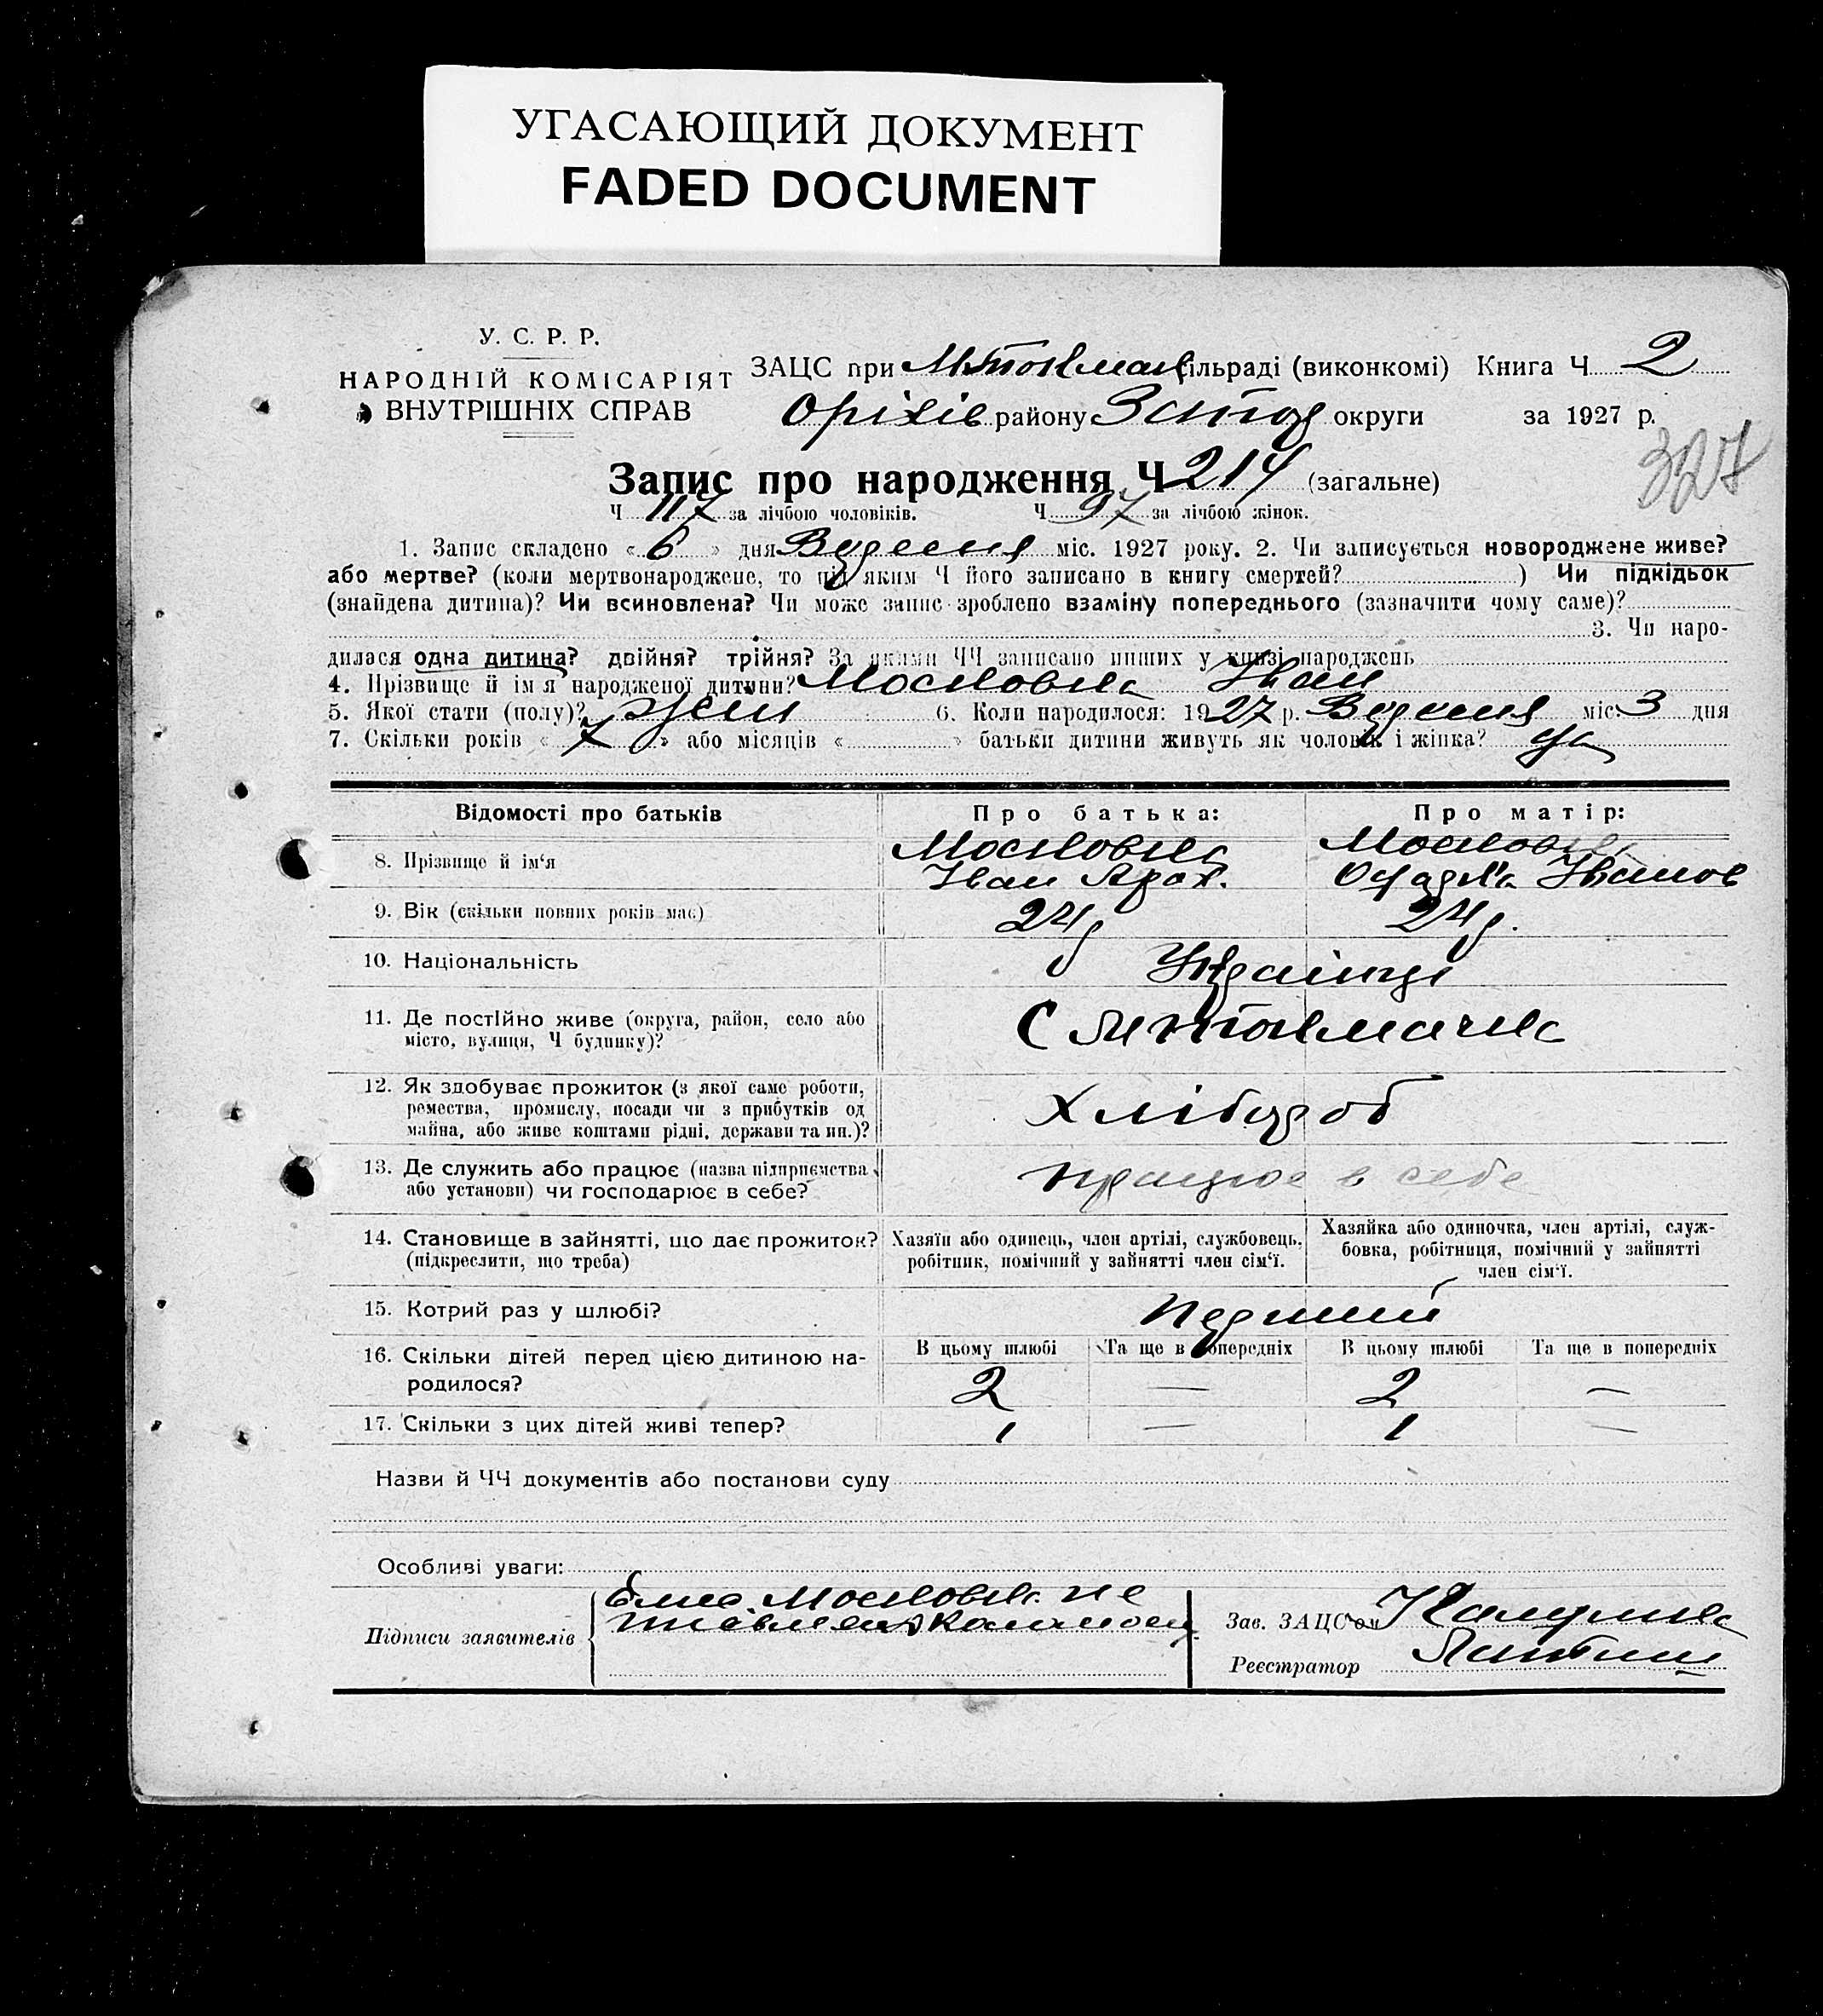 УГАСАЮЩИЙ ДОКУМЕНТ
FADED DOCUMENT
У. С. Р. Р.
НАРОДНІЙ КОМІСАРІЯТ
ВНУТРІШНІХ СПРАВ
ЗАЦС при М.Токмач сільраді (виконкомі) Книга Ч 2
Оріхів району Запор округи за 1927 р.
327
Запис про народження Ч 214 (загальне)
Ч 117 за лічбою чоловіків. Ч 97 за лічбою жінок.
1. Запис складено « 6 » дня Вересня міс. 1927 року. 2. Чи записується новороджене живе?
або мертве? (коли мертвонароджене, то під яким Ч його записано в книгу смертей? ) Чи підкідьок
(знайдена дитина)? Чи всиновлена? Чи може запис зроблено взаміну попереднього (зазначити чому саме)?
3. Чи наро-
дилася одна дитина? двійня? трійня? За якими ЧЧ записано инших у книзі народжень
4. Прізвище й ім'я народженої дитини? Московка Іван
5. Якої стати (полу)? 6. Коли народилося: 1927 р. Вересня міс. 3 дня
7. Скільки років « 7 » або місяців « » батьки дитини живуть як чоловік і жінка? да
Відомості про батьків
Про батька:
Про матір:
8. Прізвище й ім'я
Московка
Іван
Московка
Іванов
9. Вік (скільки повних років має)
24р
24р.
10. Національність
Українці
11. Де постійно живе (округа, район, село або
місто, вулиця, Ч будинку)?
С
12. Як здобуває прожиток (з якої саме роботи,
ремества, промислу, посади чи з прибутків од
майна, або живе коштами рідні, держави та ин.)?
Хлібороб
13. Де служить або працює (назва підприємства
або установи) чи господарює в себе?
працює в себе
14. Становище в зайнятті, що дає прожиток?
(підкреслити, що треба)
Хазяїн або одинець, член артілі, службовець,
робітник, помічний у зайнятті член сім'ї.
Хазяйка або одиночка, член артілі, служ-
бовка, робітниця, помічний у зайнятті
член сім'ї.
15. Котрий раз у шлюбі?
Перший
16. Скільки дітей перед цією дитиною на-
родилося?
В цьому шлюбі
Та ще в попередніх
В цьому шлюбі
Та ще в попередніх
2 — 2 —
17. Скільки з цих дітей живі тепер?
1 — 1 —
Назви й ЧЧ документів або постанови суду
Особливі уваги:
Підписи заявителів
Московка не
Зав. ЗАЦС'ом
Реєстратор